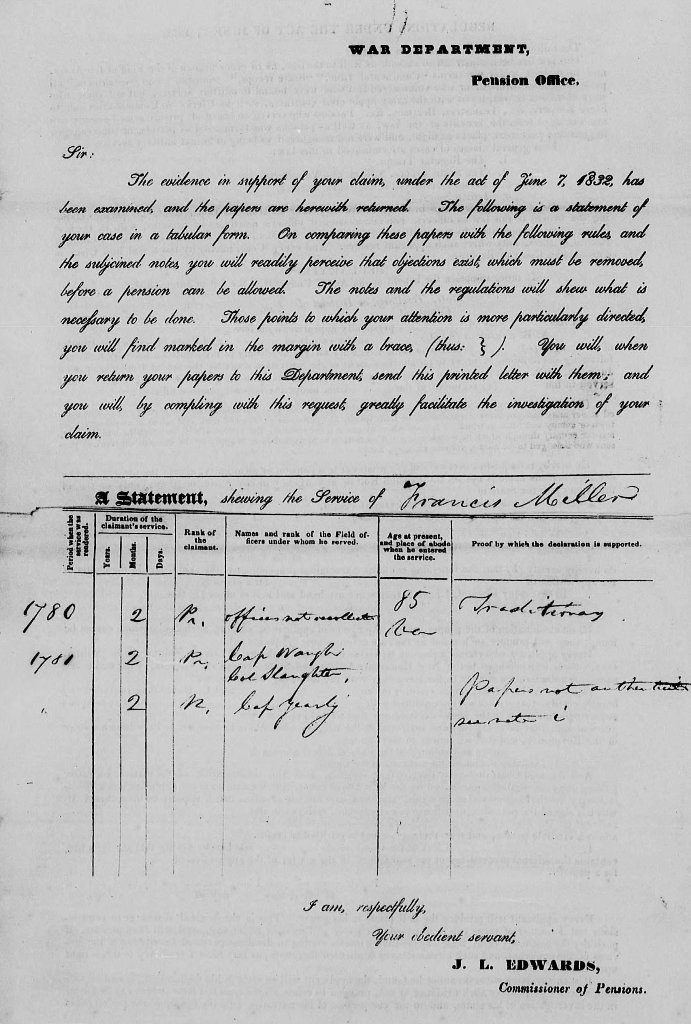 WAR DEPARTMENT,
Pension Office.
Sir:
The evidence in support of your claim, under the act of June 7, 1832, has
been examined, and the papers are herewith returned. The following is a statement of
your case in a tabular form. On comparing these papers with the following rules, and
the subjoined notes, you will readily perceive that objections exist, which must be removed,
before a pension can be allowed. The notes and the regulations will shew what is
necessary to be done. Those points to which your attention is more particularly directed,
you will find marked in the margin with a brace, (thus: } ). You will, when
you return your papers to this Department, send this printed letter with them; and
you will, by compling with this request, greatly facilitate the investigation of your
claim.
A Statement, shewing the Service of Francis Miller
Period when the service was rendered.
Duration of the claimant's service.
Years.
Months.
Days.
Rank of the claimant.
Names and rank of the Field officers under whom he served.
Age at present, and place of abode when he entered the service.
Proof by which the declaration is supported.
1780 2 Pr. offices not recollected 85 Traditionary
Va
1781 2 Pr. Cap Waugh
Col Slaughter,
" 2 Cap Yearly Papers not authen
see note i
I am, respectfully,
Your obedient servant,
J. L. EDWARDS,
Commissioner of Pensions.